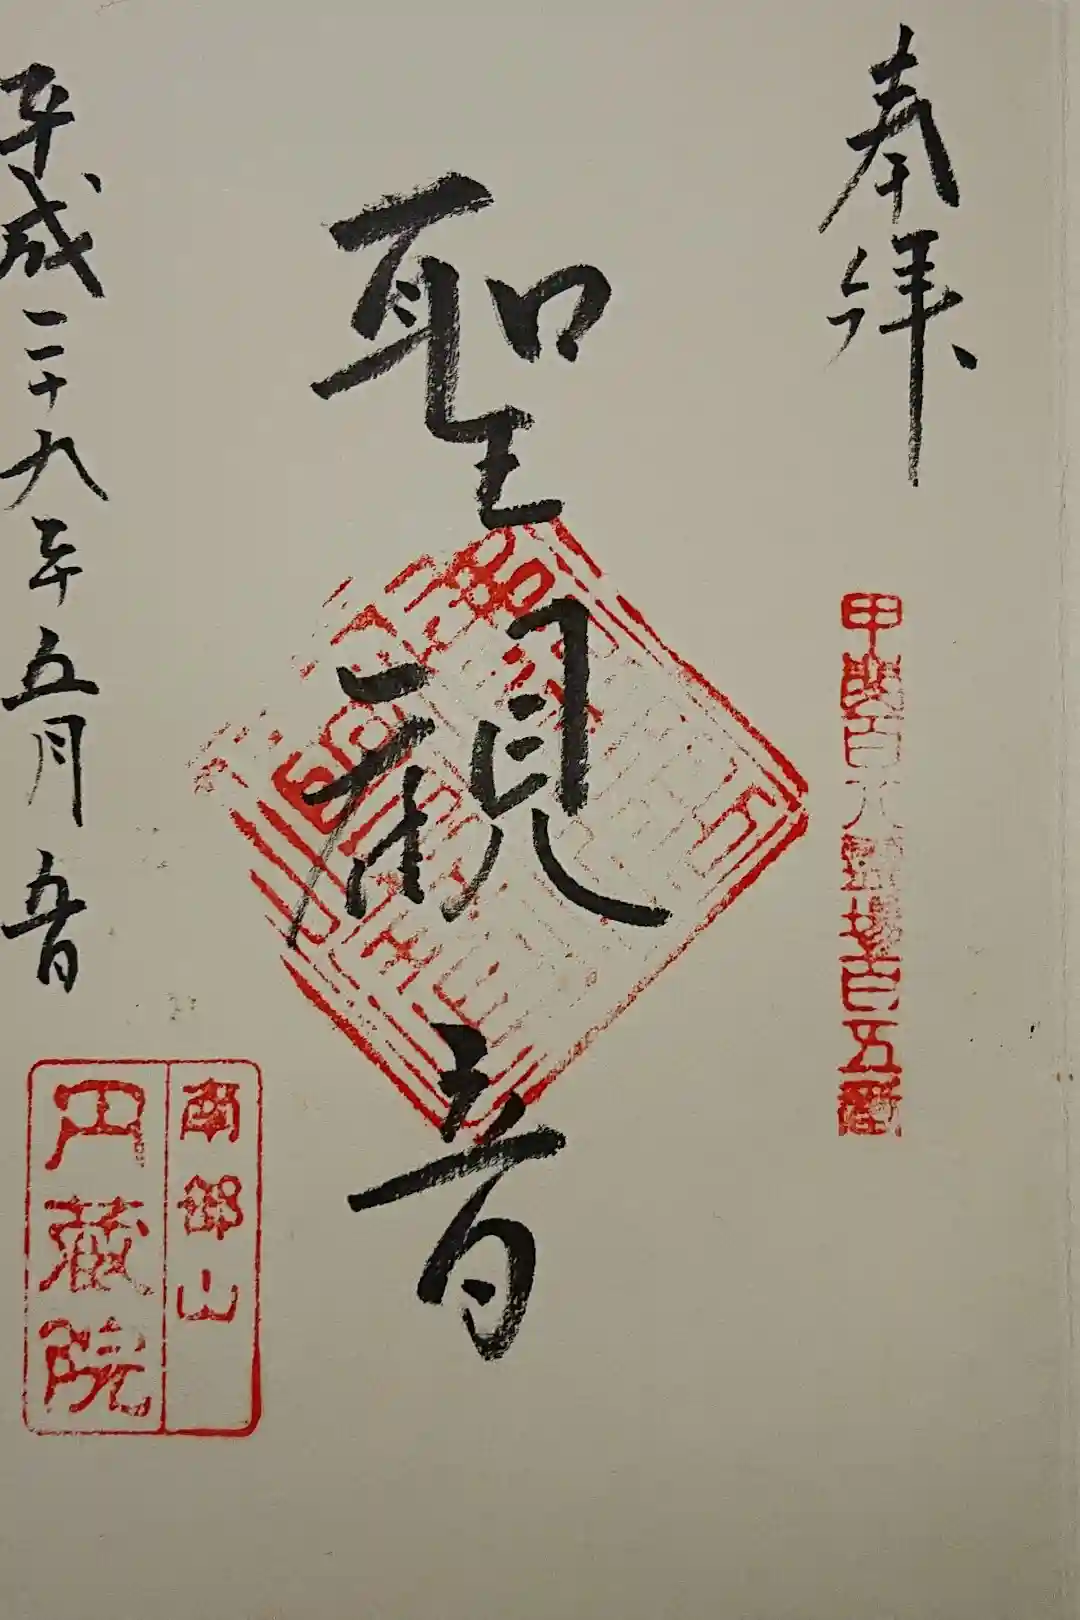 奉拝
甲斐百八霊場百五番
聖観音
平成二十九年五月五日
南部山
円蔵院